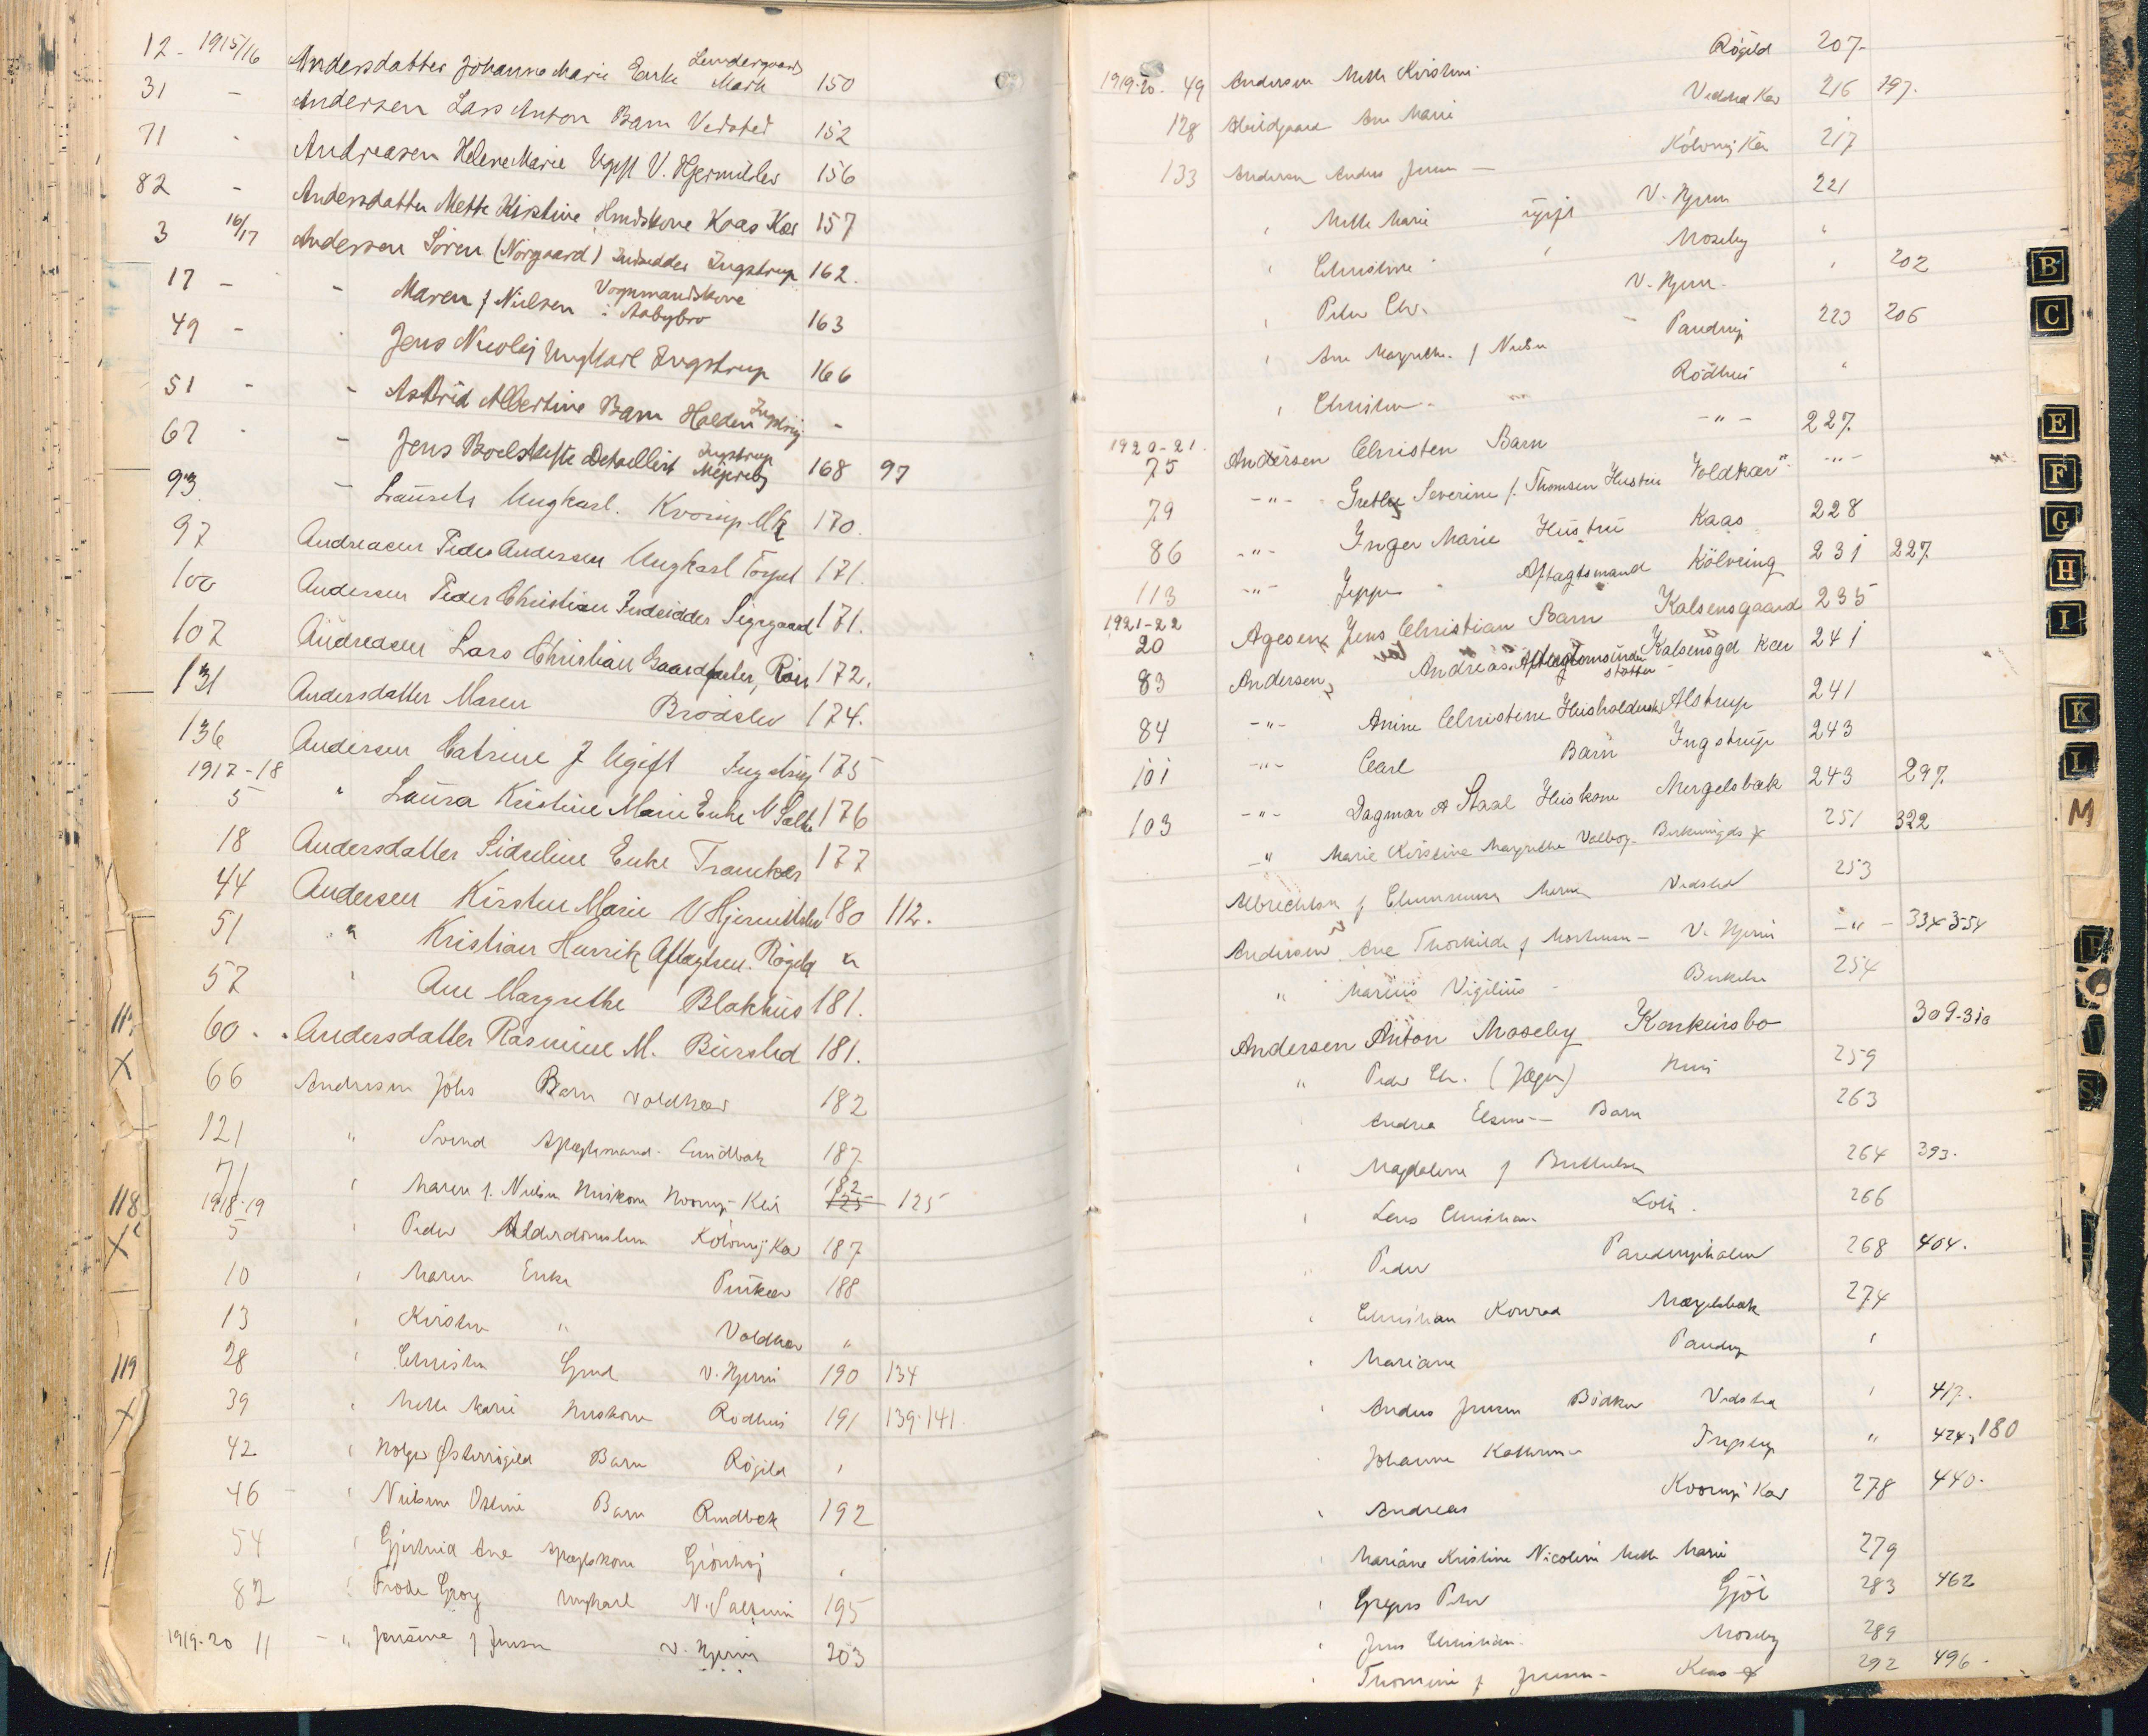 12 - 1915/16 Andersdatter Johanne Marie Enke Lundergaards Mark 150
31 - Andersen Lars Anton Barn Vedsted 152
71 - Andreasen Helene Marie Ugift V. Hjermitslev 156
82 - Andersdatter Mette Kirstine Hmdskone Kaas Kær 157
3 16/17 Andersen Søren (Nørgaard) Indsidder Ingstrup 162.
17 - - Maren f Nielsen Vognmandskone i Aabybro 163
49 - Jens Nicolaj Ungkarl Ingstrup 166
51 - - Astrid Albertine Barn Holden Ingstrup -
67 - - Jens Boelskifte Detaillist Ingstrup Mejeriby 168 97
93. - Laurits Ungkarl. Kvorup Mk 170.
97 Andreasen Peder Andersen Ungkarl 171.
100 Andersen Peder Christian Indsidder Sigsgaard 171.
107 Andreasen Lars Christian Gaardfæster, 172.
131 Andersdatter Maren Brødslev 174.
136 Andersen Catrine f Ugift Ingstrup 175
1917-18
5 " Laura Kristine Marie Enke N Saltum 176
18 Andersdatter Sidseline Enke Trankær 177
44 Andersen Kirsten Marie V Hjermitslev 180 112.
51 " Kristian Henrik Aftægtsm. Røgild "
57 " Ane Margrethe Blokhus 181.
60 . Andersdatter Rasmine M. Birsted 181.
66 Andersen Johs Barn Voldkær 182
121 " Svend Aftægtsmand. Lundbak 187
71 " Maren f. Nielsen Huskone Kvorup Kær 182 125 125
1918-19
5 " Peder Alderdomshem Kølvring Kær 187
10 " Maren Enke 188
13 " Kirsten " Voldkær "
28 " Christen Gmd V. Hjerm 190 134
39 " Mette Marie Huskone Rødhus 191 139-141
42 " Holger Østerrøgild Barn Røgild "
46 - " Nielsine Barn Rendbæk 192
54 " Gjertrud Ane Aftægtskone Grønhøj "
82 " Frode Georg Ungkarl N. Saltum 195
1919-20 11 - " Jensine f Jensen V. Hjerm 203
1919-20. 49 Andersen Mette Kirstine Røgild 207-
128 Abildgaard Ane Marie Vedsted Kær 216 197.
133 Andersen Anders Jensen - Kølvring Kær 217
" Mette Marie ugift V. Hjerm 221
" Christine " Moseby "
" Peder Chr. V. Hjerm - " 202
" Ane Margrethe f Nielsen - Pandrup 223 206
" Christen - Rødhus "
1920-21.
75 Andersen Christen Barn -"- 227.
79 -"- Grethe Severine f. Thomsen Hustru Voldkær" -"-
86 -"- Inger Marie Hustru Kaas 228
113 -"- Jeppe - Aftægtsmand Kölvring 231 227
1921-22
20 Agesen Jens Christian Barn Kalsensgaard 235
83 Andersen Andreas Kalsensgd Kær 241
84 -"- Anine Christine Husholderske Alstrup 241
101 -"- Carl Barn Ingstrup 243
103 -"- Dagmar A Staal Huskone Mergelsbæk 243 297.
-" Marie Kirstine Margrethe Valborg. 251 322
Albrechtsen f Clemmensen Maren Vedsted 253
Andersen Ane Thorkilde f Mortensen - V. Hjerm -"- 334-354
" Marius Vigilius - Birkelse 254
Andersen Anton Moseby Konkursbo 309-310
" Peder Chr. (Jæger) Hune 259
" Andrea Elsine - Barn 263
" Magdalene f Berthelsen 264 393.
" Lars Christian 266
" Peder Pandrupholm 268 404.
" Christian Konrad Mergelsbæk 274
" Mariane Pandrup "
" Anders Jensen Bødker Vedsted " 417.
" Johanne Kathrine Ingstrup " 424, 180
" Andreas Kvorup Kær 278 440.
" Mariane Kristine Nicoline Mette Marie 279
" Gregers Peter Gjøl 283 462
" Jens Christian - Moseby 289
" Thomine f Jensen - Kaas 292 496-
117
X
118
X
119
X
B
C
E
F
G
H
I
K
L
M
P
S